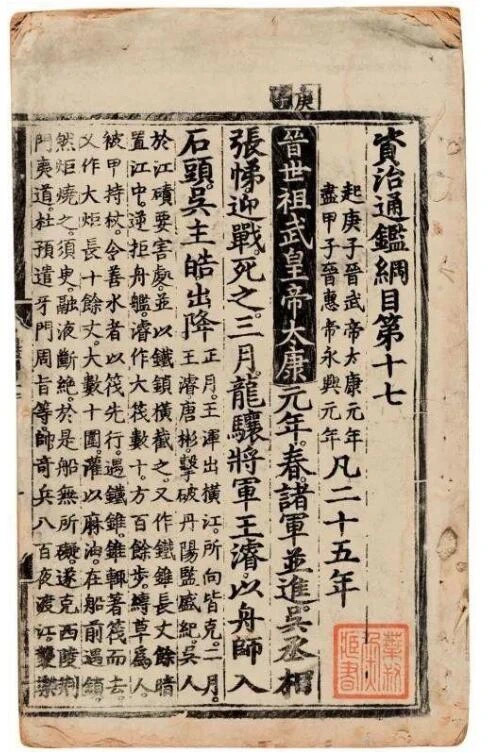 庚子
資治通鑑綱目第十七
起庚子晉武帝太康元年
盡甲子晉惠帝永興元年
凡二十五年
晉世祖武皇帝太康元年。春。諸軍並進。吳丞相
張悌迎戰。死之。三月。龍驤將軍王濬。以舟師入
石頭。吳主皓出降
正月。王渾出橫江。所向皆克。二月。
王濬唐彬擊破丹陽監盛紀。吳人
於江磧要害處。並以鐵鎖橫截之。又作鐵錐長丈餘暗
置江中。逆拒舟艦。濬作大筏數十。方百餘步。縛草爲人。
彼甲持杖。令善水者以筏先行。遇鐵錐。錐輒著筏而去。
又作大炬長十餘丈。大數十圍。灌以麻油。在船前遇鎖。
然炬燒之。須臾。融液斷絶。於是船無所礙。遂克西陵荆
門夷道。杜預遣牙門周旨等。帥奇兵八百夜渡江。襲樂